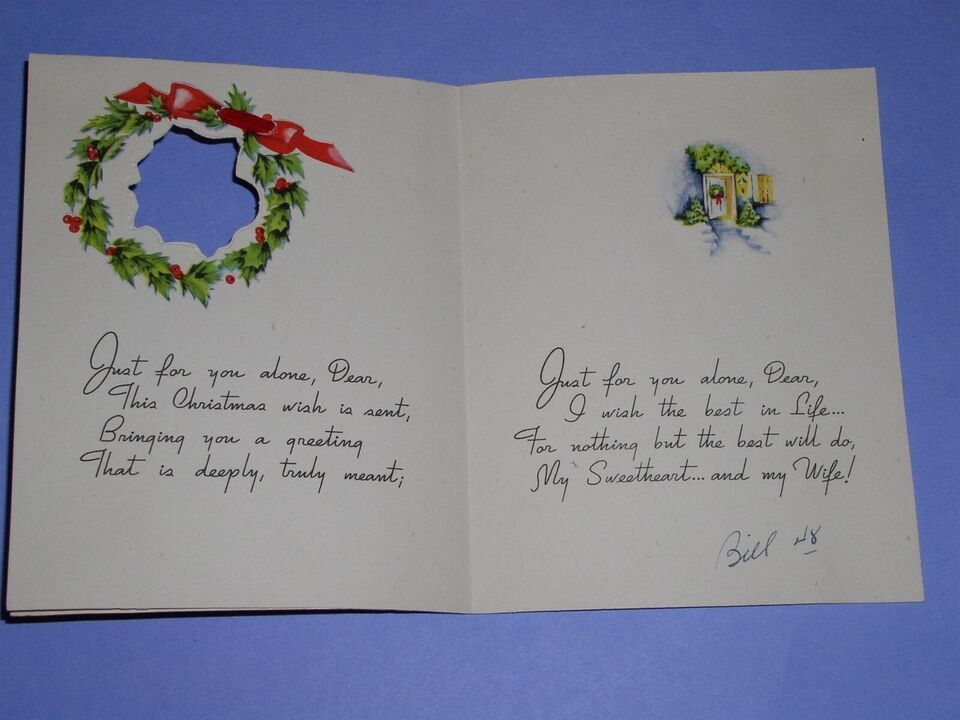 Just for you alone, Dear,
This Christmas wish is sent,
Bringing you a greeting
That is deeply, truly meant;
Just for you alone, Dear,
I wish the best in Life...
For nothing but the best will do,
My Sweetheart... and my Wife!
Bill 48